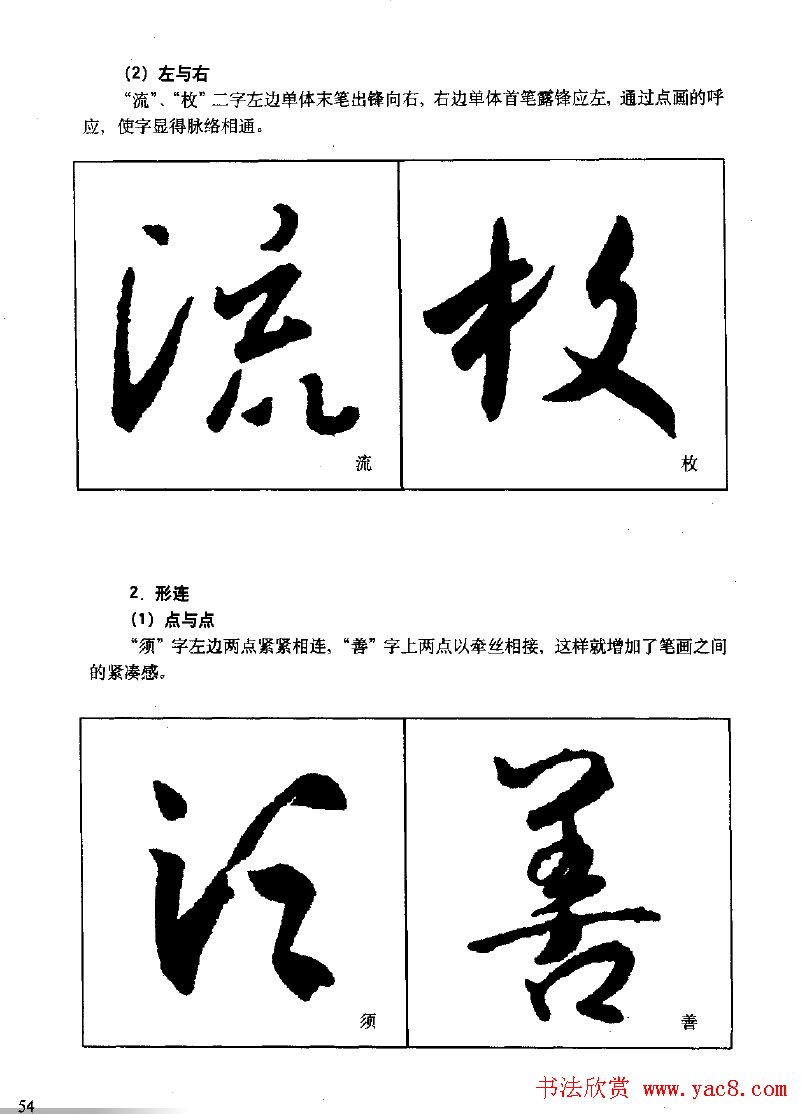 (2) 左与右
“流”、“枚”二字左边单体末笔出锋向右，右边单体首笔露锋应左，通过点画的呼
应，使字显得脉络相通。
流 枚
流 枚
2. 形连
(1) 点与点
“须”字左边两点紧紧相连，“善”字上两点以牵丝相接，这样就增加了笔画之间
的紧凑感。
须 善
须 善
54
书法欣赏 www.yac8.com